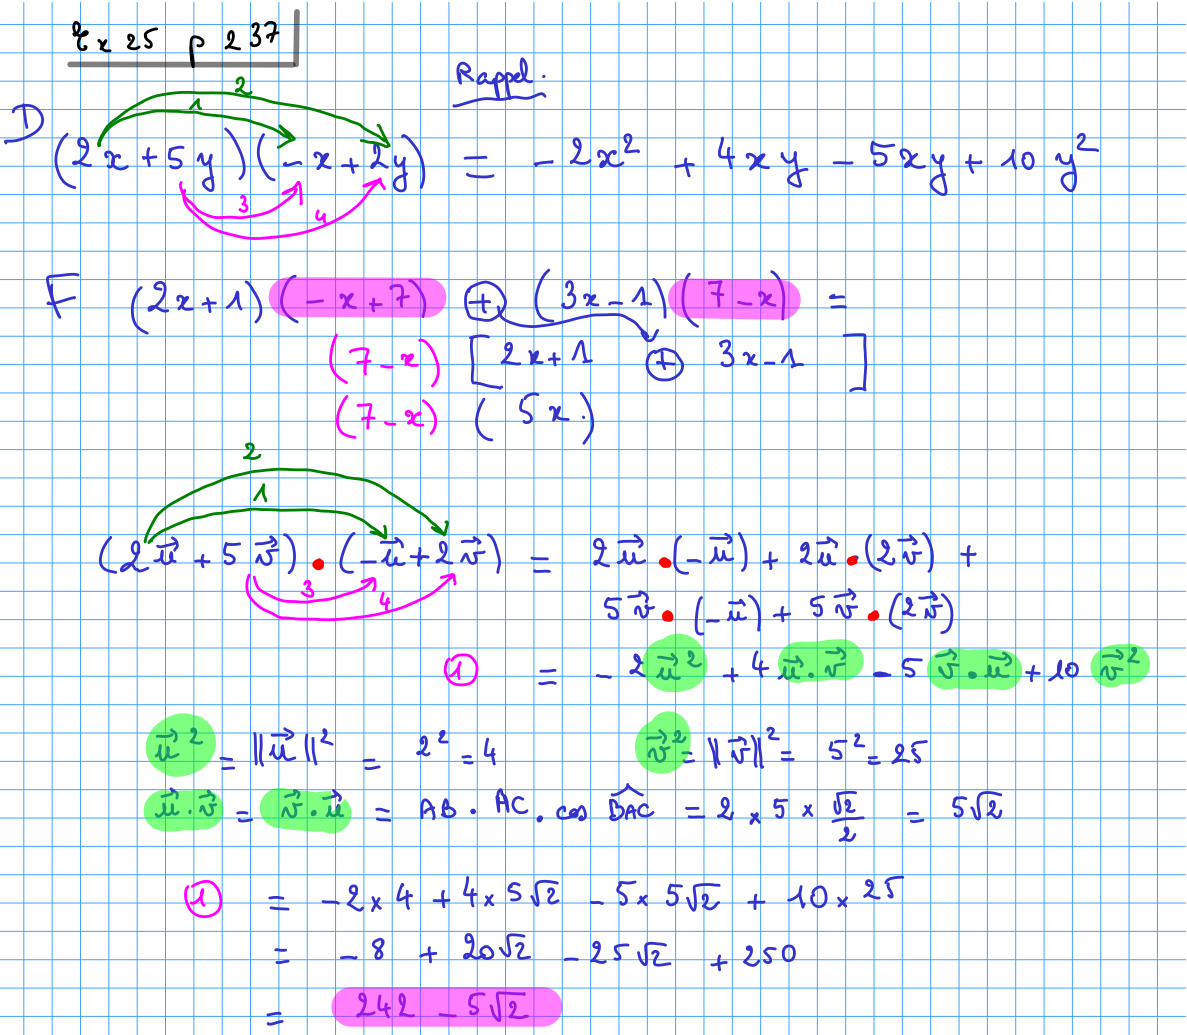 Ex 25 p 237
Rappel.
2
1
D (2x + 5y)(-x + 2y) = -2x² + 4xy - 5xy + 10y²
3
4
F (2x+1)(-x+7) + (3x-1)(7-x) =
(7-x) [2x+1 + 3x-1]
(7-x) (5x.)
2
1
(2u⃗ + 5v⃗) . (-u⃗ + 2v⃗) = 2u⃗ . (-u⃗) + 2u⃗ . (2v⃗) +
3
4
5v⃗ . (-u⃗) + 5v⃗ . (2v⃗)
① = -2u⃗² + 4u⃗.v⃗ - 5v⃗.u⃗ + 10v⃗²
u⃗² = ||u⃗||² = 2² = 4 v⃗² = ||v⃗||² = 5² = 25
u⃗.v⃗ = v⃗.u⃗ = AB . AC . cos BAC^ = 2 × 5 × √2/2 = 5√2
① = -2×4 + 4×5√2 - 5×5√2 + 10×25
= -8 + 20√2 - 25√2 + 250
= 242 - 5√2